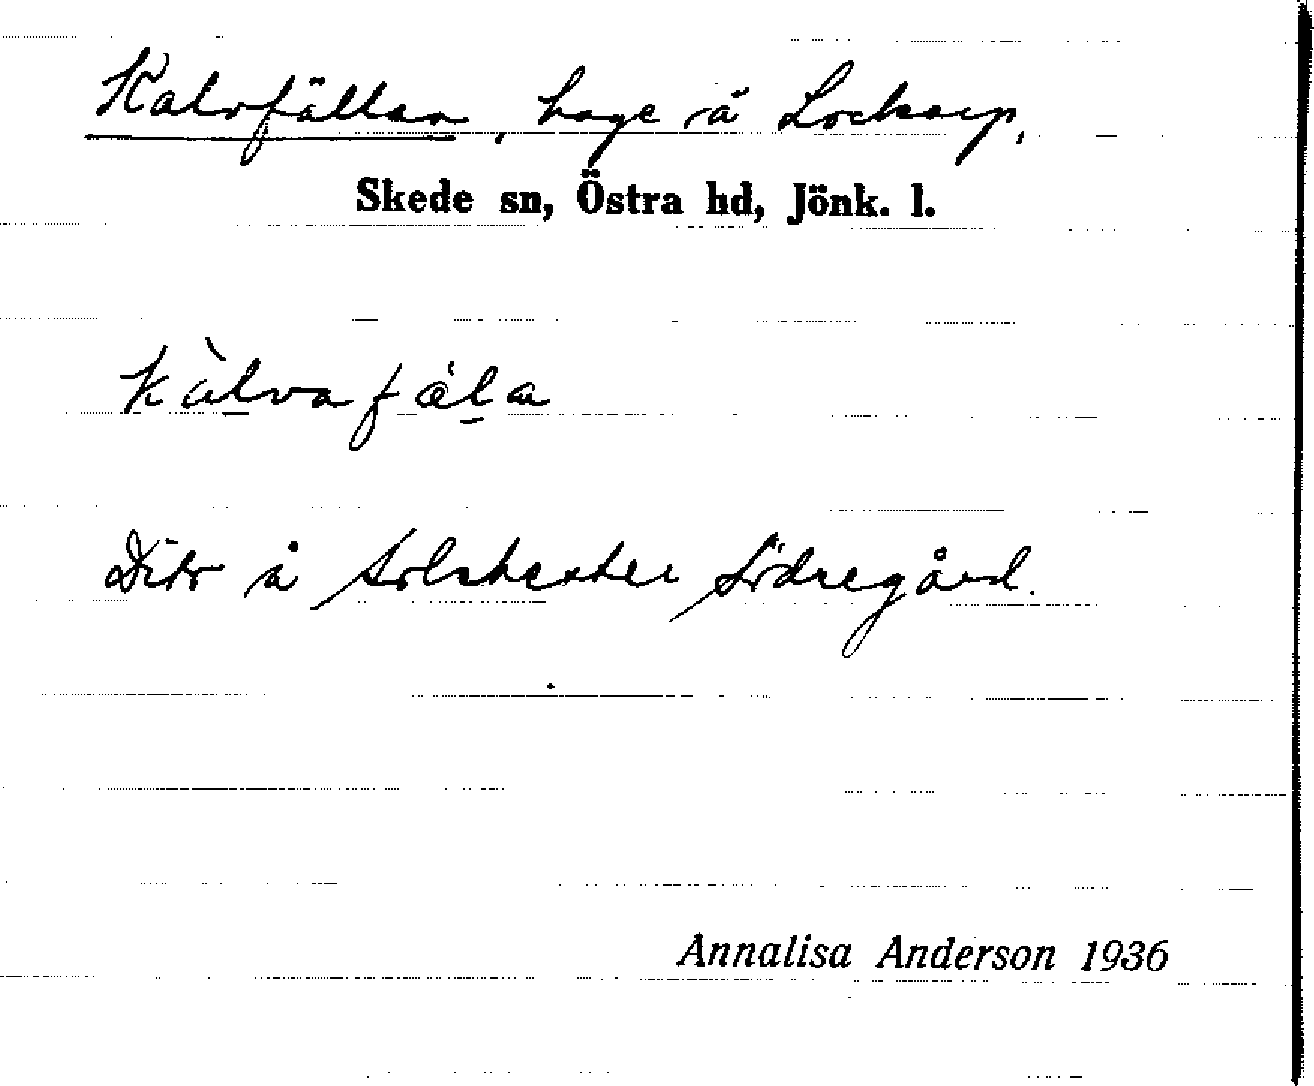 Kalvfällan, hage å Lockarp,
Skede sn, Östra hd, Jönk. l.
kàlvafäĺa
Dito å Solshester Södregård.
Annalisa Anderson 1936